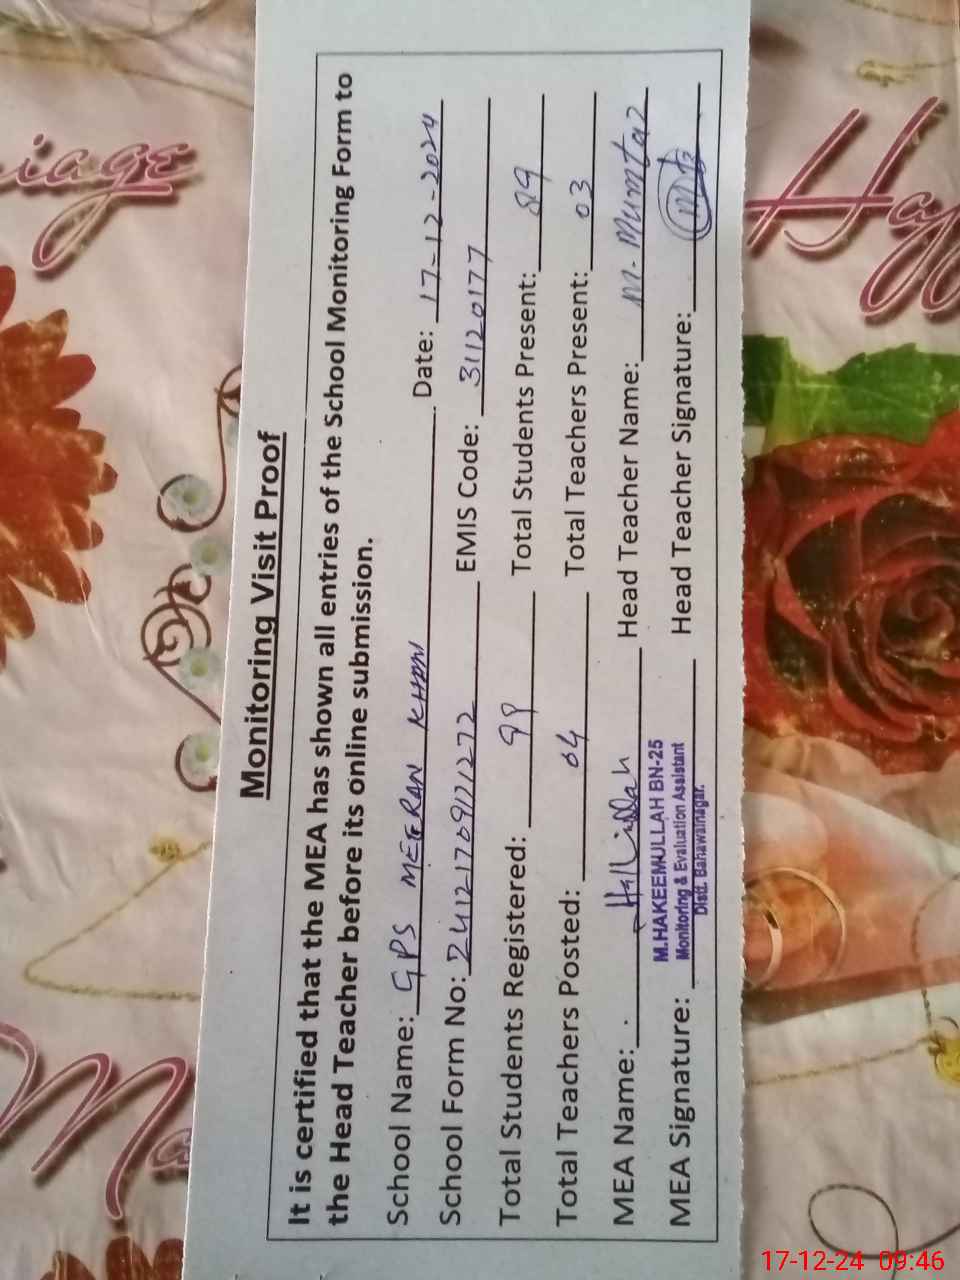 Monitoring Visit Proof
It is certified that the MEA has shown all entries of the School Monitoring Form to
the Head Teacher before its online submission.
School Name: GPS MEERAN KHAN Date: 17-12-2024
School Form No: EMIS Code: 31120177
Total Students Registered: Total Students Present: 89
Total Teachers Posted: 04 Total Teachers Present: 03
MEA Name: Head Teacher Name: M. Mumtaz
M.HAKEEMULLAH BN-25
Monitoring & Evaluation Assistant
Distt. Bahawalnagar.
MEA Signature: Head Teacher Signature:
iage
Ma
Hap
17-12-24 09:46